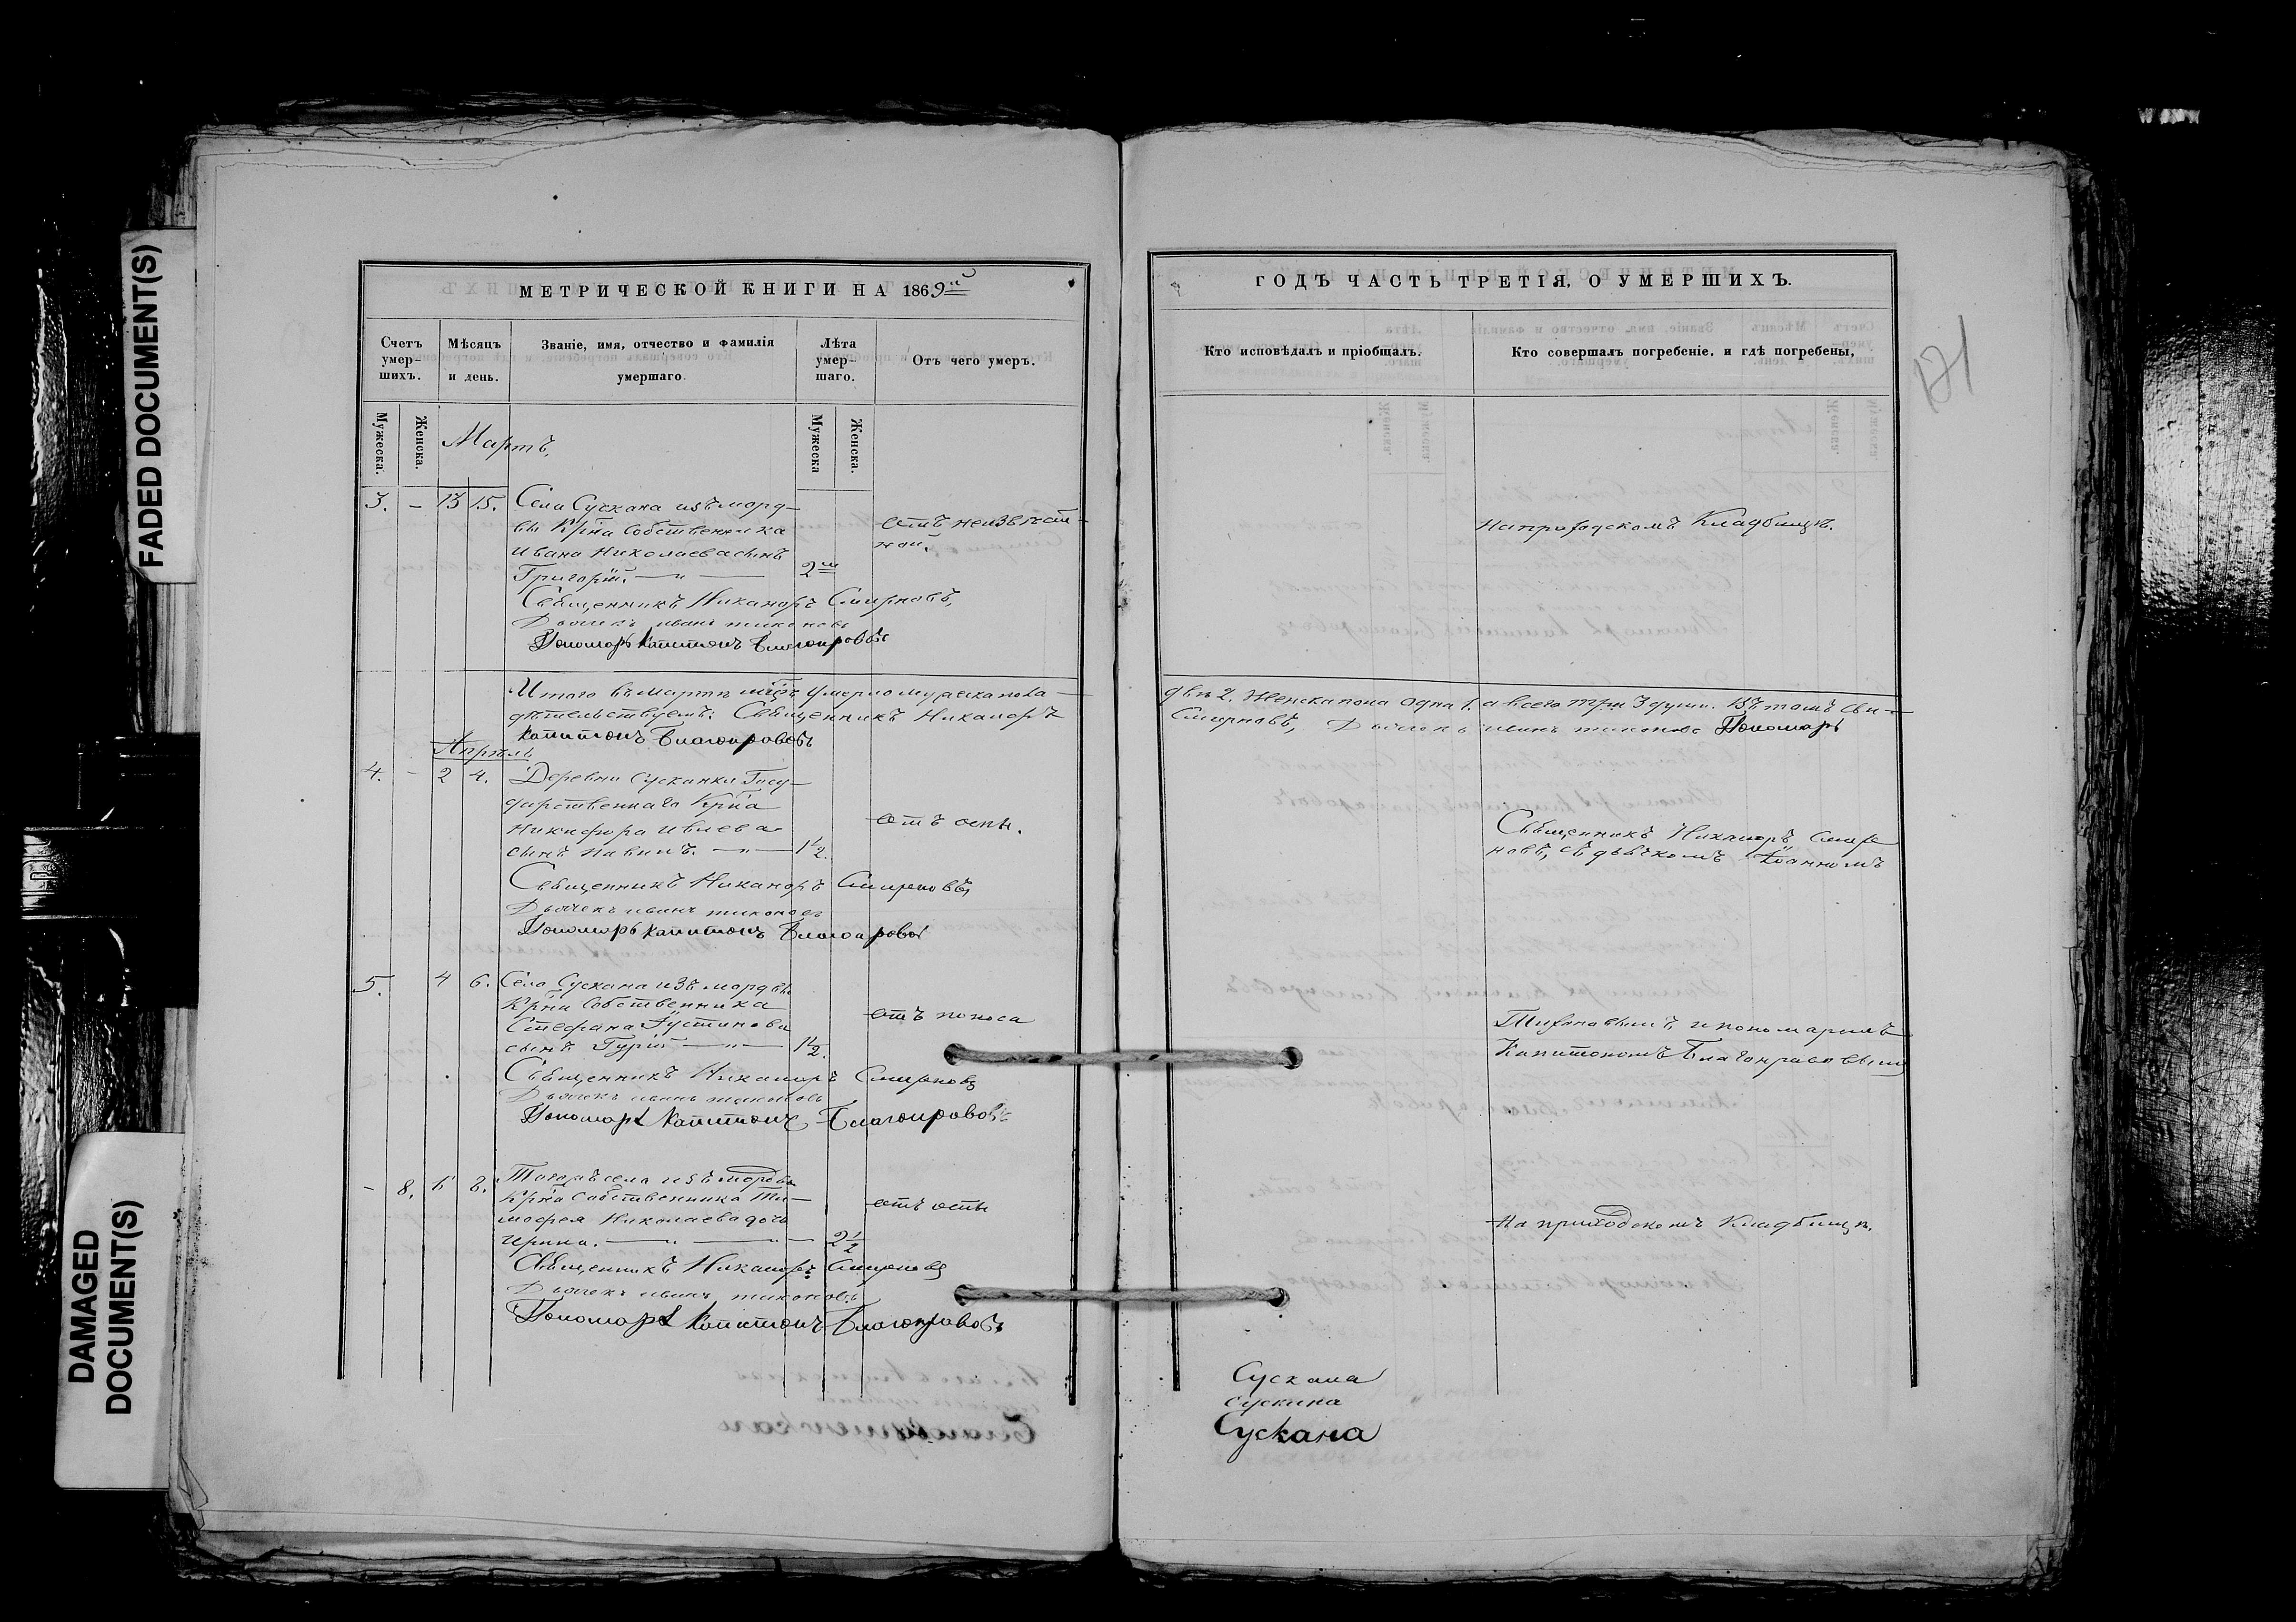 FADED DOCUMENT(S)
DAMAGED
DOCUMENT(S)
МЕТРИЧЕСКОЙ КНИГИ НА 1869й
Счетъ умер-шихъ.
Мѣсяцъ и день.
Званіе, имя, отчество и фамилія умершаго.
Лѣта умер-шаго.
Отъ чего умеръ.
Мужеска.
Женска.
Мужеска
Женска.
Мартъ,
3. - 13 15. Села Сускана изъ морд-
вы Крн҃а Собственника
Ивана Николаева сынъ
Григорій. 2м
отъ неизвѣст-
ной.
Священникъ Никаноръ Смирновъ,
Дьячекъ Иванъ Тихоновъ
Пономарь Капитонъ Благонравовъ
Итого въ Мартѣ мц҃ѣ умерло мужеска пола
дѣтельствуемъ: Священникъ Никаноръ
Капитонъ Благонравовъ
Апрѣль
4. - 2 4. Деревни Сусканки Госу-
дарственнаго Крн҃а
Никифора Ивлева
сынъ 1 1/2.
отъ оспы.
Священникъ Никаноръ Смирновъ
Дьячекъ Иванъ Тихоновъ
Пономарь Капитонъ Благонравовъ
5. 4 6. Села Сускана изъ мордвы
Крн҃а Собственника
Стефана Іустинова
сынъ Гурій 1 1/2.
отъ поноса
Священникъ Никаноръ Смирновъ
Дьячекъ Иванъ Тихоновъ
Пономарь Капитонъ Благонравовъ
- 8. 6 8. Тогожъ села изъ мордвы
Крн҃а Собственника Ти-
мофея Николаева дочь
Ирина. 2 1/2
отъ оспы
Священникъ Никаноръ Смирновъ
Дьячекъ Иванъ Тихоновъ
Пономарь Капитонъ Благонравовъ
ГОДЪ ЧАСТЬ ТРЕТІЯ, О УМЕРШИХЪ.
Кто исповѣдалъ и пріобщалъ.
Кто совершалъ погребеніе, и гдѣ погребены,
171
На приходскомъ Кладбищѣ.
двѣ 2. Женска пола одна 1. а всего три 3 души. Въ томъ сви-
Смирновъ, Дьячекъ Иванъ Тихоновъ Пономарь
Священникъ Никаноръ Смир
новъ, съ дьячкомъ Іоанномъ
Тихоновымъ и пономаремъ
Капитономъ Благонравовымъ
На приходскомъ Кладбищѣ.
Сускана
Сускана
Сускана